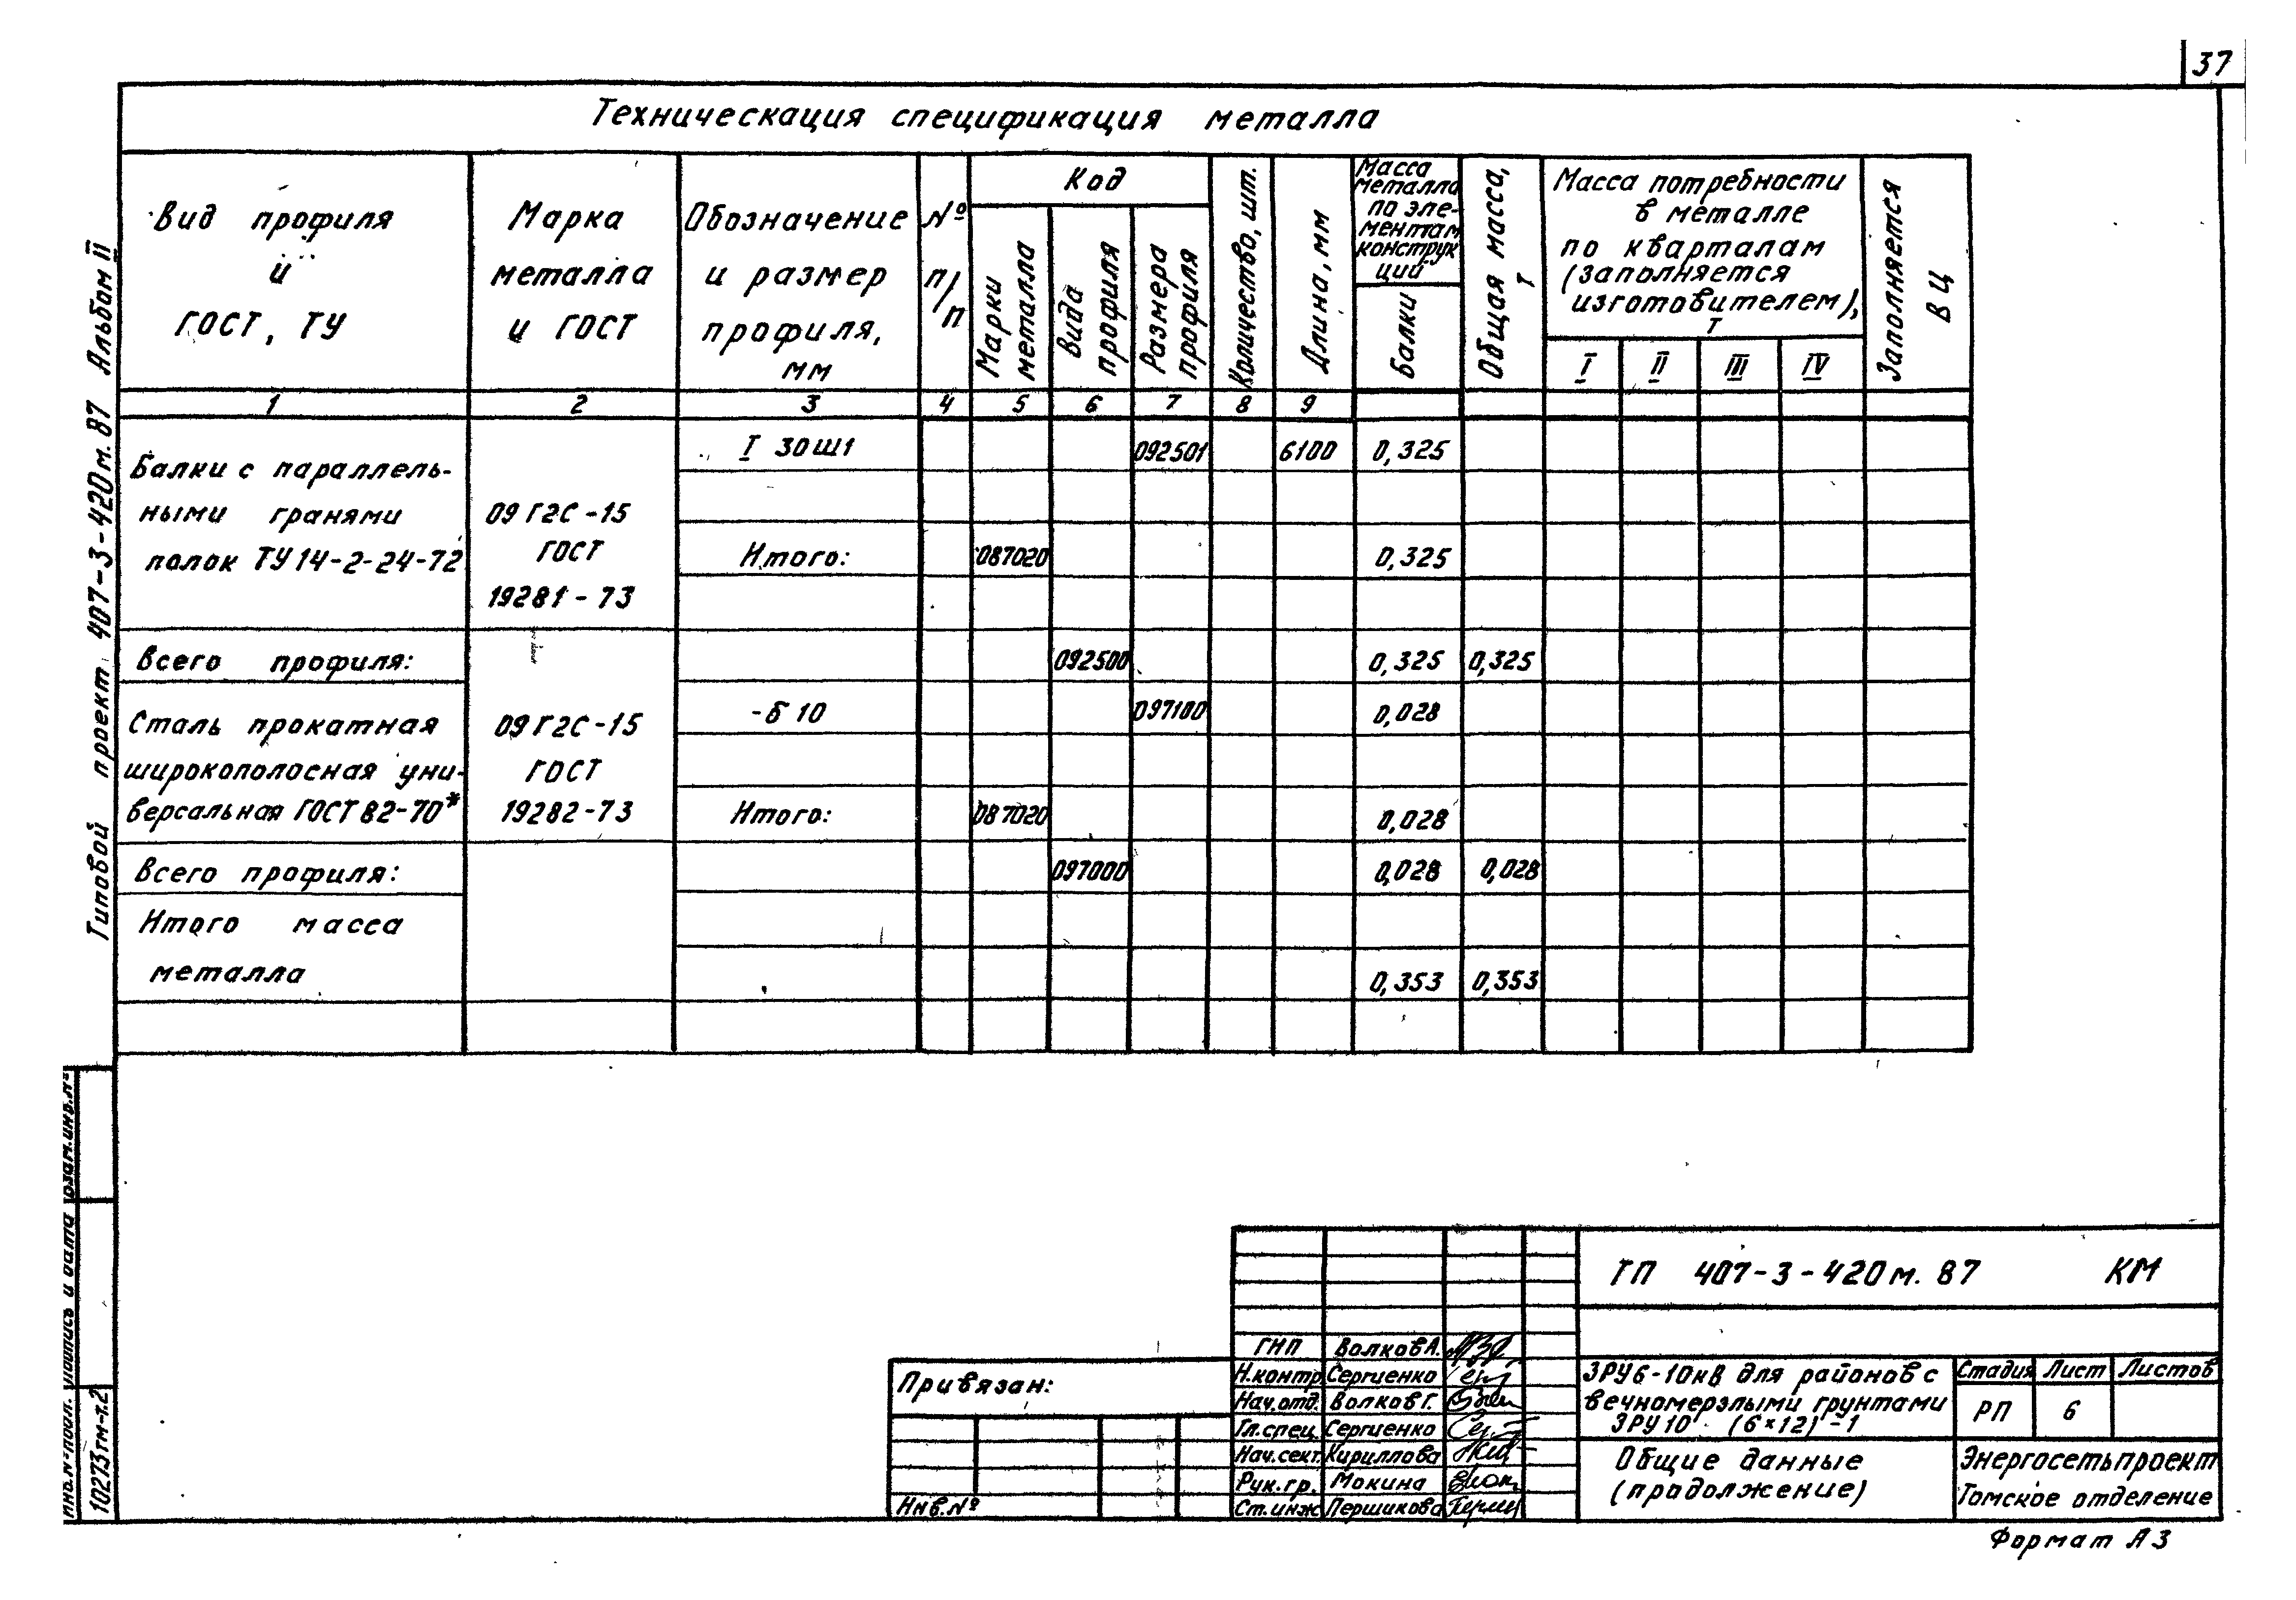 37
Техническация спецификация металла
Вид профиля
и
ГОСТ, ТУ
Марка
металла
и ГОСТ
Обозначение
и размер
профиля,
мм
№
п/п
Код
Марки
металла
Вида
профиля
Размера
профиля
Количество, шт.
Длина, мм
Масса
металла
по эле-
ментам
конструк
ций
Балки
Общая масса,
т
Масса потребности
в металле
по кварталам
(заполняется
изготовителем),
т
I II III IV
Заполняется
ВЦ
1 2 3 4 5 6 7 8 9
Балки с параллель-
ными гранями
полок ТУ 14-2-24-72
09Г2С-15
ГОСТ
19281-73
I 30Ш1 092501 6100 0,325
Итого: 087020 0,325
Всего профиля: 092500 0,325 0,325
Сталь прокатная
широкополосная уни-
версальная ГОСТ 82-70*
09Г2С-15
ГОСТ
19282-73
-δ 10 097100 0,028
Итого: 087020 0,028
Всего профиля: 097000 0,028 0,028
Итого масса
металла 0,353 0,353
Типовой проект 407-3-420м.87 Альбом II
Взам.инв.№
Подпись и дата
Инв.№подл.
10273тм-т.2
Привязан:
Инв.№
ГИП Волков А.
Н.контр. Сергиенко
Нач.отд. Волков Г.
Гл.спец. Сергиенко
Нач.сект. Кириллова
Рук.гр. Мокина
Ст.инж Першикова
ТП 407-3-420м.87 КМ
ЗРУ 6-10кВ для районов с
вечномерзлыми грунтами
ЗРУ 10 (6×12)-1
Стадия Лист Листов
РП 6
Общие данные
(продолжение)
Энергосетьпроект
Томское отделение
Формат А3